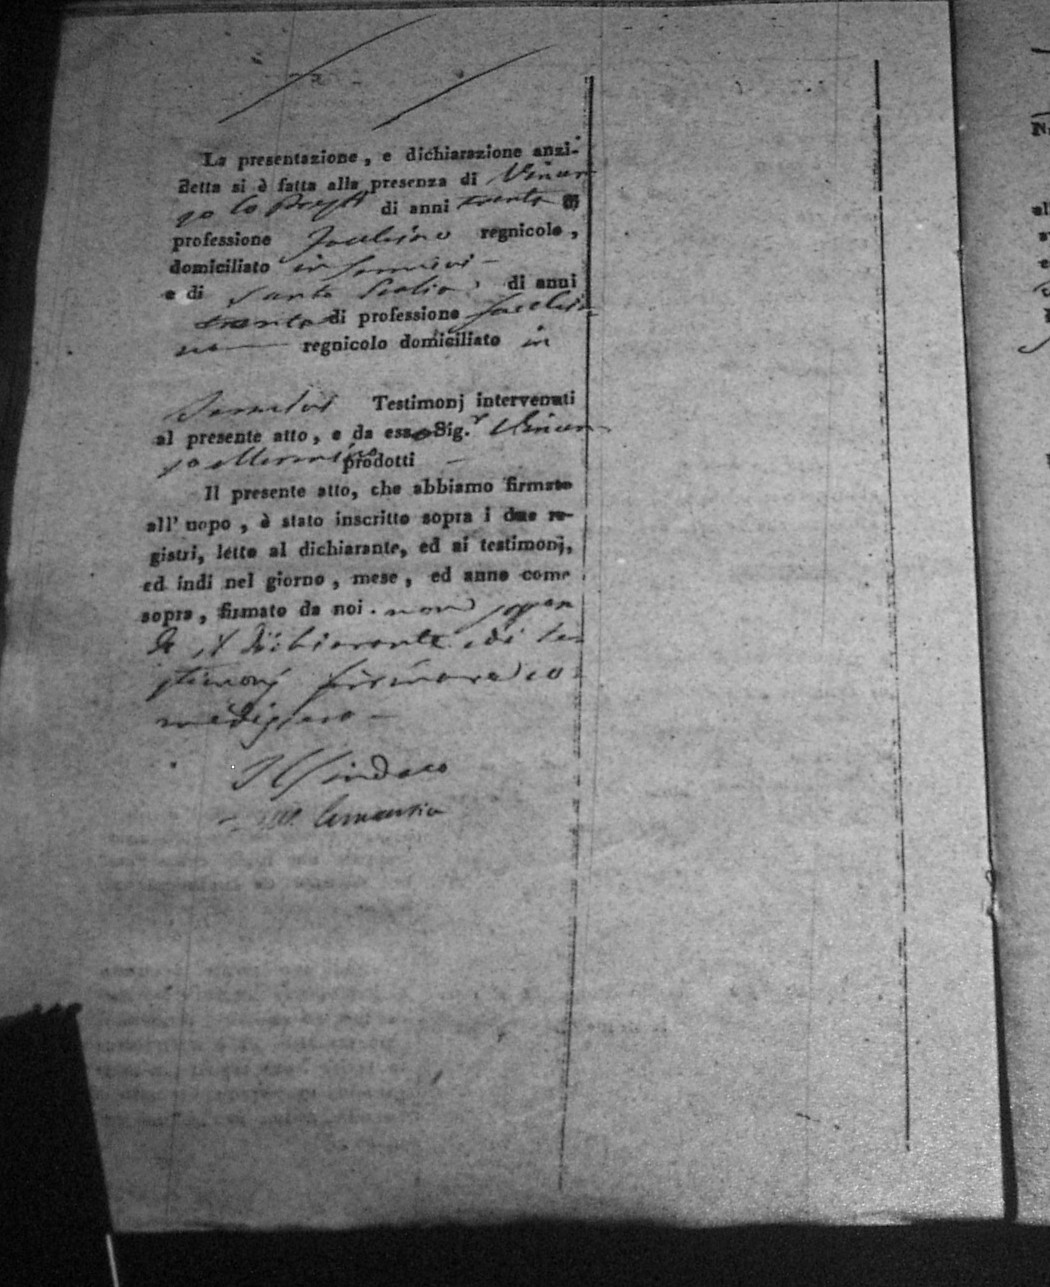 La presentazione, e dichiarazione anzi-
detta si è fatta alla presenza di Vincen
zo lo Prest di anni trenta di
professione regnicolo,
domiciliato in
e di Santo di anni
trenta di professione
no regnicolo domiciliato in
Testimonj intervenuti
al presente atto, e da esso Sig.r Vincen
zo prodotti
Il presente atto, che abbiamo firmato
all' uopo, è stato inscritto sopra i due re-
gistri, letto al dichiarante, ed ai testimonj,
ed indi nel giorno, mese, ed anno come
sopra, firmato da noi. non sapen
do il dichiarante, ed i te
stimonj firmare co
me dissero
Il Sindaco